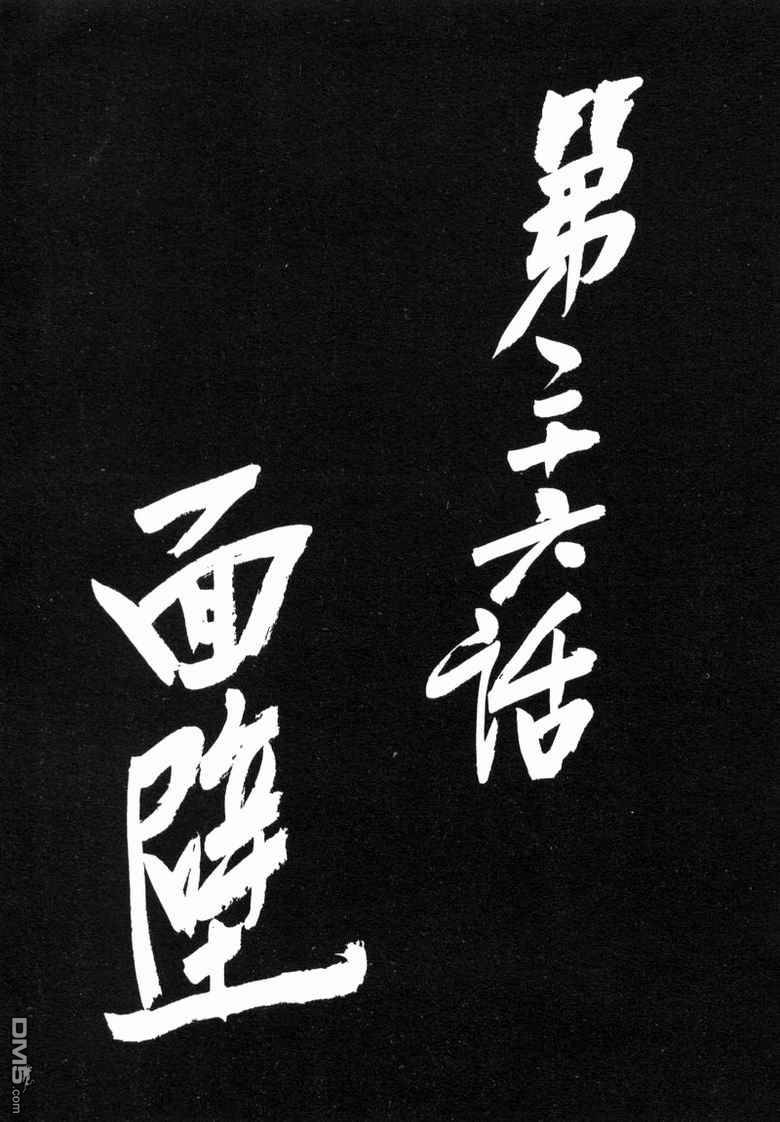 第二十六话
面壁
DM5.com